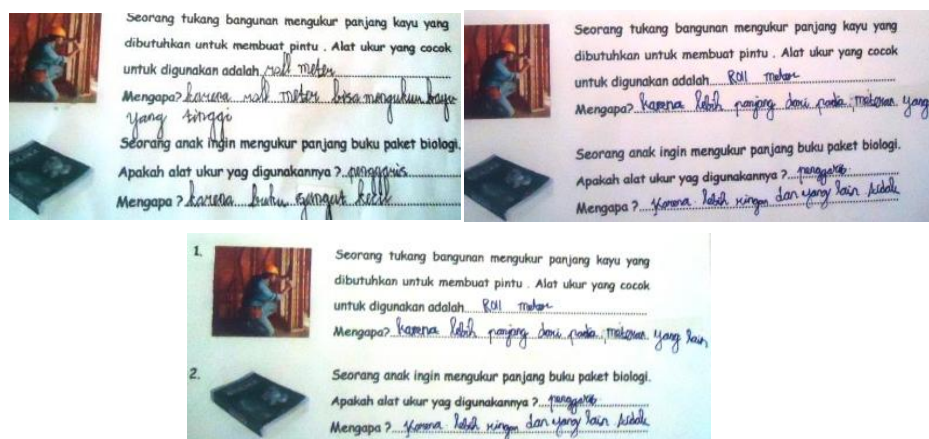 Seorang tukang bangunan mengukur panjang kayu yang
dibutuhkan untuk membuat pintu . Alat ukur yang cocok
untuk digunakan adalah roll meter
Mengapa? karena roll meter bisa mengukur kayu
yang tinggi
Seorang anak ingin mengukur panjang buku paket biologi.
Apakah alat ukur yag digunakannya ? penggaris
Mengapa ? karena buku sangat kecil
Seorang tukang bangunan mengukur panjang kayu yang
dibutuhkan untuk membuat pintu . Alat ukur yang cocok
untuk digunakan adalah Roll meter
Mengapa? karena lebih panjang dari pada meteran yang
Seorang anak ingin mengukur panjang buku paket biologi.
Apakah alat ukur yag digunakannya ? penggaris
Mengapa ? karena lebih ringan dan yang lain tidak
1.
Seorang tukang bangunan mengukur panjang kayu yang
dibutuhkan untuk membuat pintu . Alat ukur yang cocok
untuk digunakan adalah Roll meter
Mengapa? karena lebih panjang dari pada meteran yang lain
2.
Seorang anak ingin mengukur panjang buku paket biologi.
Apakah alat ukur yag digunakannya ? penggaris
Mengapa ? karena lebih ringan dan yang lain tidak